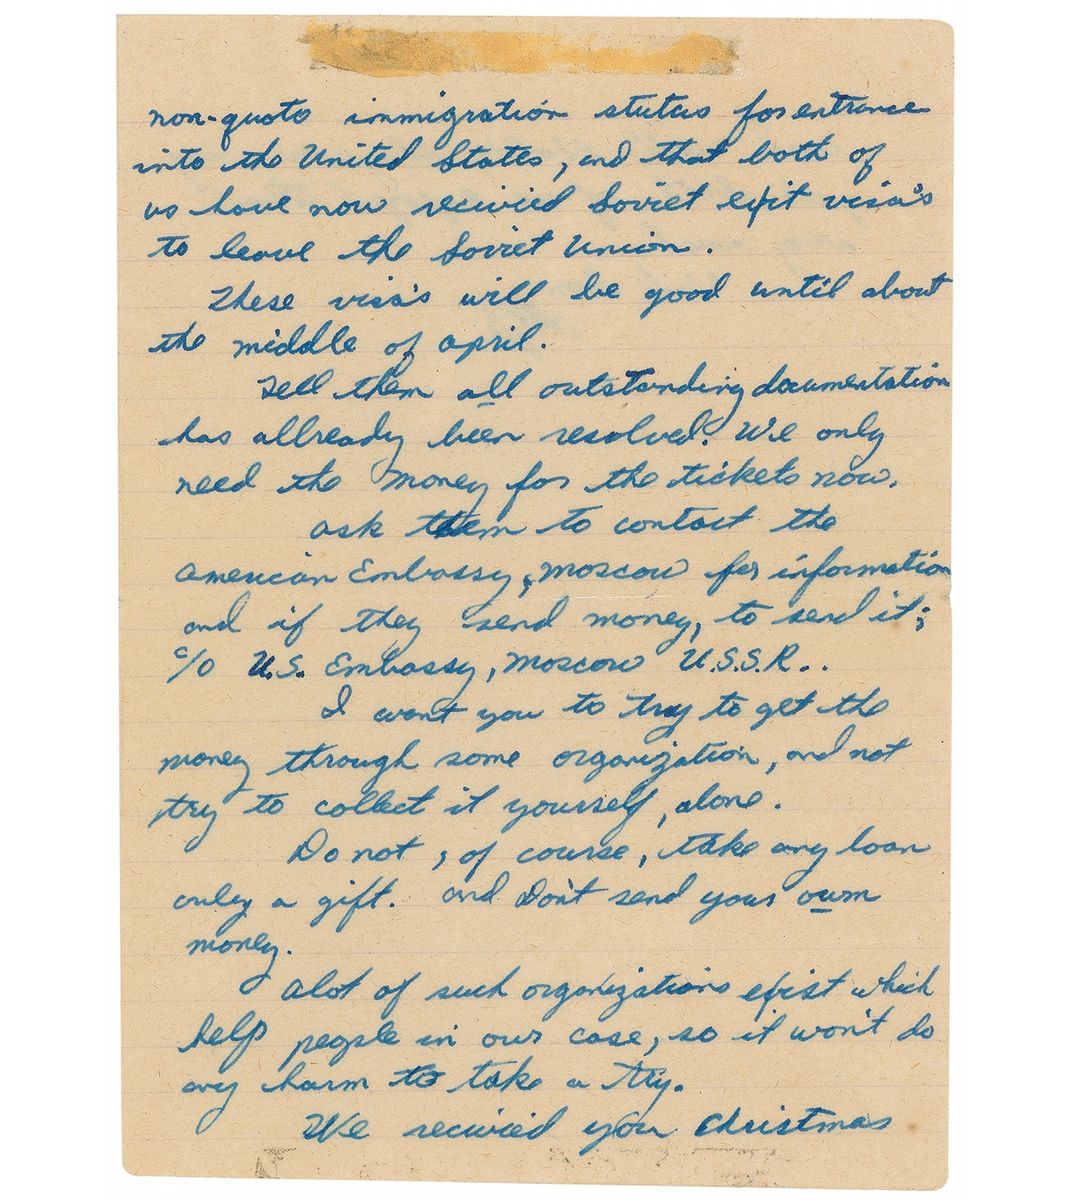 non-quoto immigration status for entrance
into the United States, and that both of
us have now recivied Soviet exit visa's
to leave the Soviet Union.
These visa's will be good until about
the middle of april.
Tell them all outstanding documentation
has allready been resolved. We only
need the money for the tickets now.
ask them to contact the
american Embassy, Moscow for information
and if they send money, to send it;
c/o U.S. Embassy, Moscow U.S.S.R..
I want you to try to get the
money through some organization, and not
try to collect it yourself, alone.
Do not, of course, take any loan
only a gift. and Don't send your own
money.
alot of such organizations exist which
help people in our case, so it won't do
any harm to take a try.
We recivied you Christmas